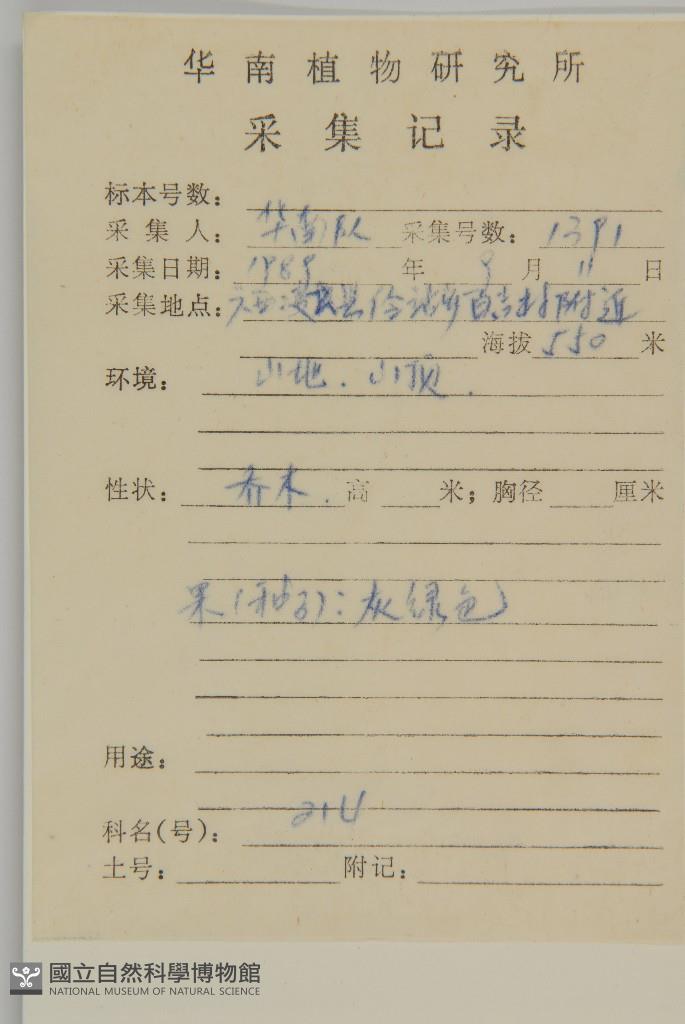 华南植物研究所
采集记录
标本号数：
采集人： 华南队 采集号数： 1391
采集日期： 1989 年 9 月 11 日
采集地点： 广西凌云县伶站乡百吉村附近
海拔 550 米
环境： 山地．山顶．
性状： 乔木． 高 米；胸径 厘米
果（种子）：灰绿色
用途：
科名(号)： 214
土号： 附记：
國立自然科學博物館
NATIONAL MUSEUM OF NATURAL SCIENCE